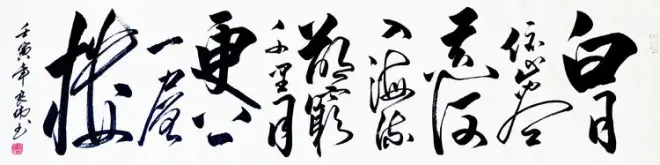 白日
依山尽
黄河
入海流
欲窮
千里目
更上
一层
楼
壬寅年
书